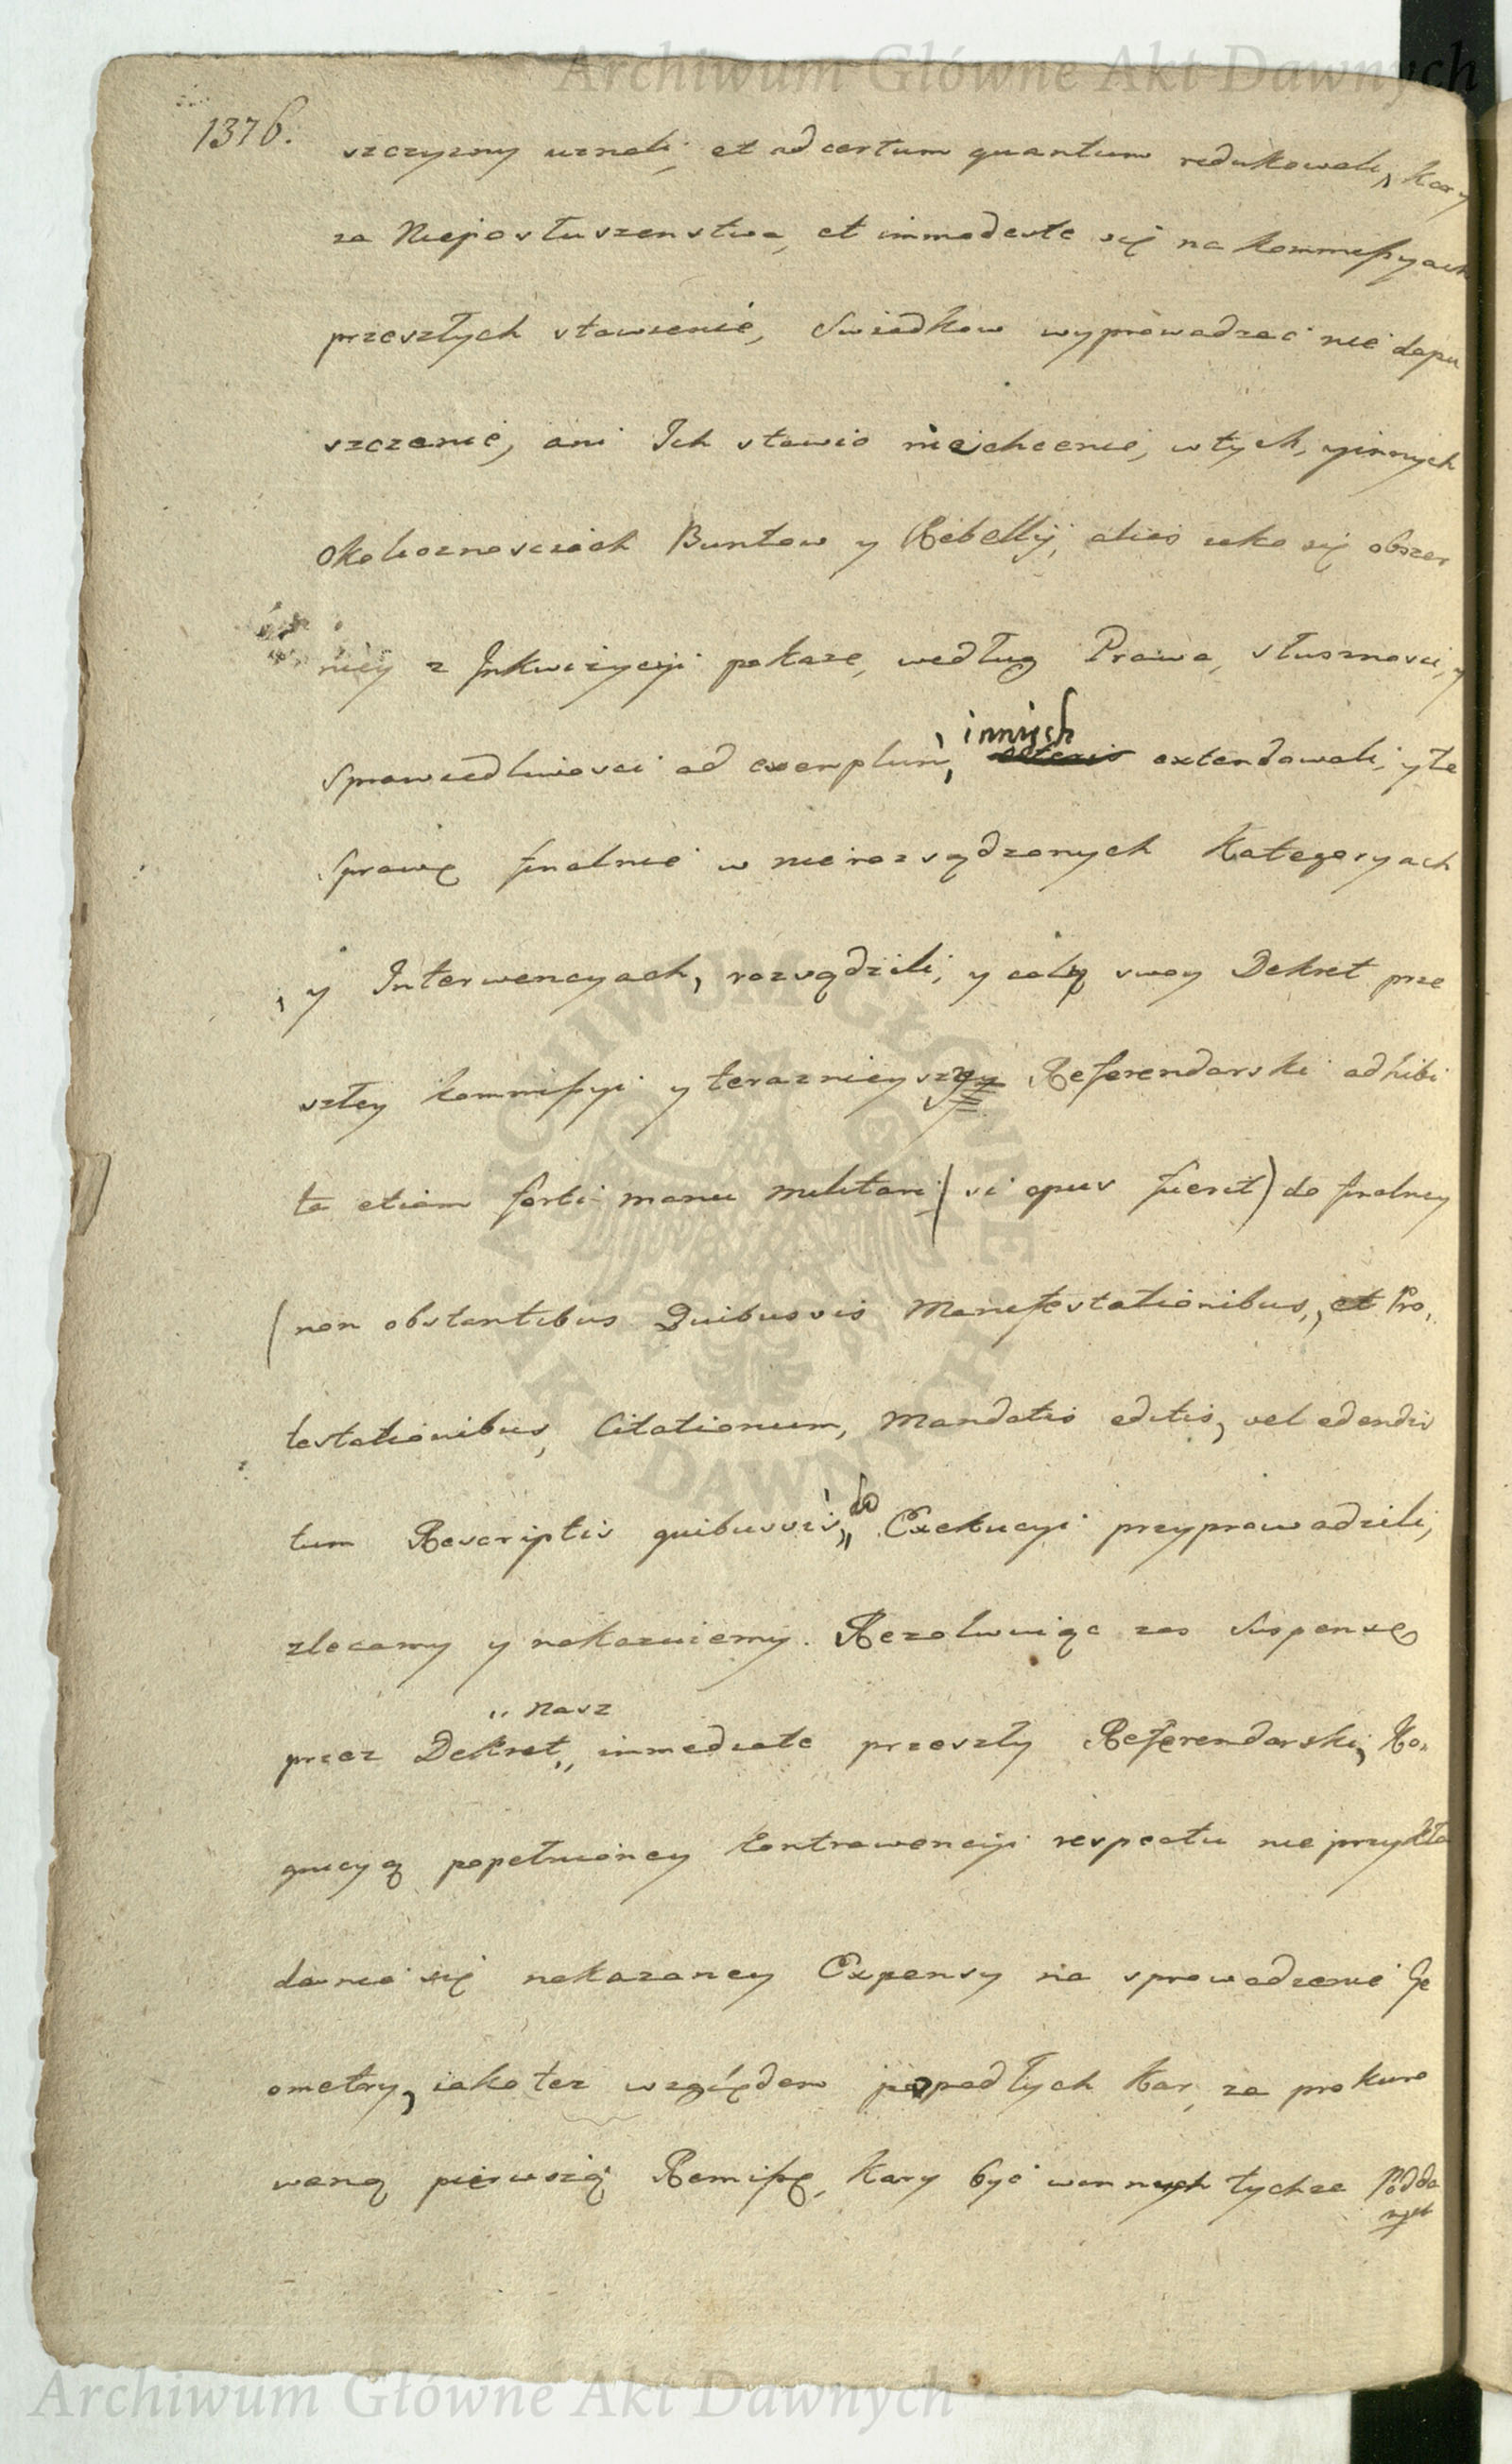 Archiwum Główne Akt Dawnych
1376.
szczyzny uznali, et ad certum quantum redukowali, kary
za Nieposłuszenstwa, et immodeste się na kommissyach
przeszłych stawienie, Swiadkow wyprowadzac nie dopu
szczenie, ani Ich stawic niechcenie, w tych, yinnych
Okolicznosciach Buntow y Rebelly, alias iako się obszer
niey z Inkwizycyi pokaze, według Prawa, słusznosci, y
innych
Sprawiedliwosci ad exemplum, extendowali, y tę
Sprawę finalnie w nierozsądzonych Kategoryach
y Interwencyach, rozsądzili, y cały swoy Dekret prze
szłey kommissyi y teraznieyszy Referendarski adhibi
ta etiam forti manu militari (si opus fuerit) do finalney
(non obstantibus Quibusvis Manifestationibus, et Pro,
testationibus, Citationum, Mandatis editis, vel edendis
tum Rescriptis quibusvis, do Exekucyi przyprowadzili,
zlecamy y nakazuiemy. Rezolwuiąc zas Suspensę
nasz
przez Dekret, immediate przeszły Referendarski, Ko,
gnicyą popełnioney kontrawencyi respectu nie przykła
dania się nakazaney Expensy na sprowadzenie Je
ometry, iako tez względem popadłych kar, za prokuro
waną pierwszą Remissę, kary byc winnych tychze Podda
nych
ARCHIWUM GŁÓWNE AKT DAWNYCH
Archiwum Główne Akt Dawnych